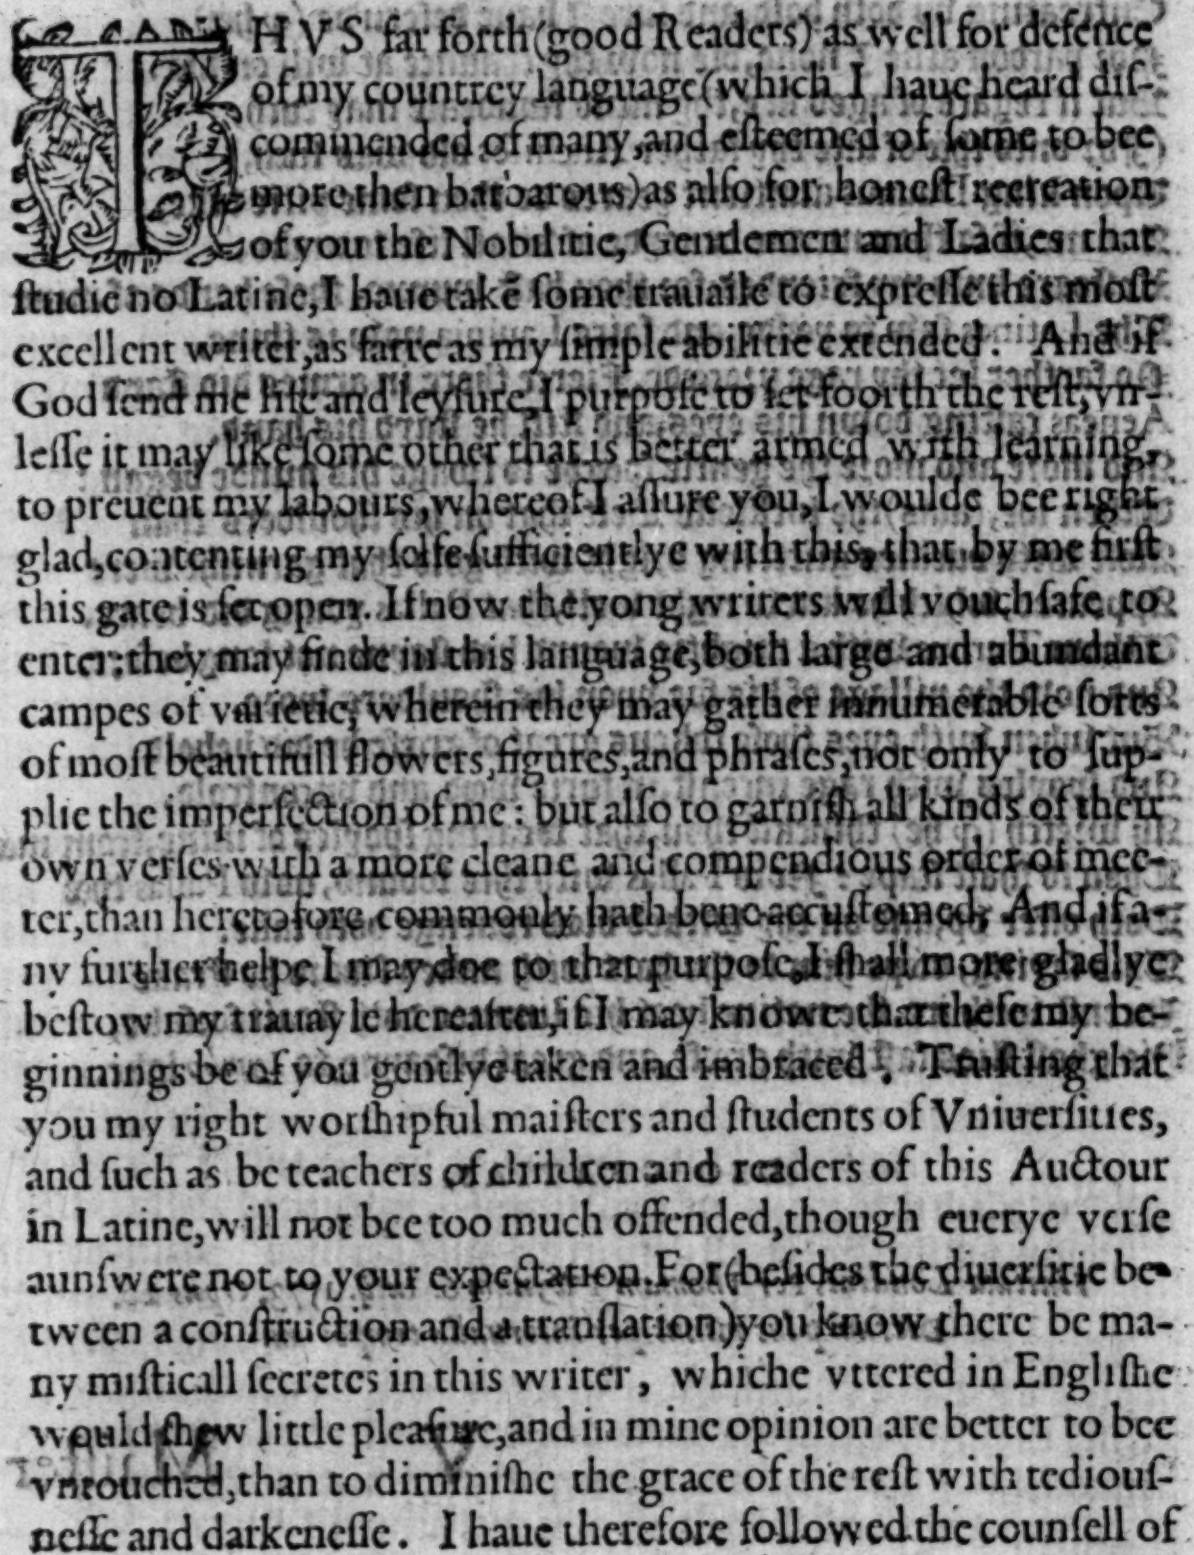 THVS far forth (good Readers) as well for defence
of my countrey language (which I haue heard diſ-
commended of many, and eſteemed of ſome to bee
more then barbarous) as alſo for honeſt recreation
of you the Nobilitie, Gentlemen and Ladies that
ſtudie no Latine, I haue takē ſome trauaile to expreſſe this moſt
excellent writer, as farre as my ſimple abilitie extended. And if
God ſend me life and leyſure, I purpoſe to ſet foorth the reſt, vn-
leſſe it may like ſome other that is better armed with learning,
to preuent my labours, whereof I aſſure you, I woulde bee right
glad, contenting my ſelfe ſufficientlye with this, that by me firſt
this gate is ſet open. If now the yong writers will vouchſafe to
enter: they may finde in this language, both large and abundant
campes of varietie, wherein they may gather innumerable ſorts
of moſt beautifull flowers, figures, and phraſes, not only to ſup-
plie the imperfection of me: but alſo to garniſh all kinds of their
own verſes with a more cleane and compendious order of mee-
ter, than heretofore commonly hath bene accuſtomed, And if a-
ny further helpe I may doe to that purpoſe, I ſhall more gladlye
beſtow my trauayle hereafter, if I may knowe that theſe my be-
ginnings be of you gentlye taken and imbraced. Truſting that
you my right worſhipful maiſters and ſtudents of Vniuerſities,
and ſuch as be teachers of children and readers of this Auctour
in Latine, will not bee too much offended, though euerye verſe
aunſwere not to your expectation. For (beſides the diuerſitie be-
tween a conſtruction and a tranſlation) you know there be ma-
ny miſticall ſecretes in this writer, whiche vttered in Engliſhe
would ſhew little pleaſure, and in mine opinion are better to bee
vntouched, than to diminiſhe the grace of the reſt with tediouſ-
neſſe and darkeneſſe. I haue therefore followed the counſell of